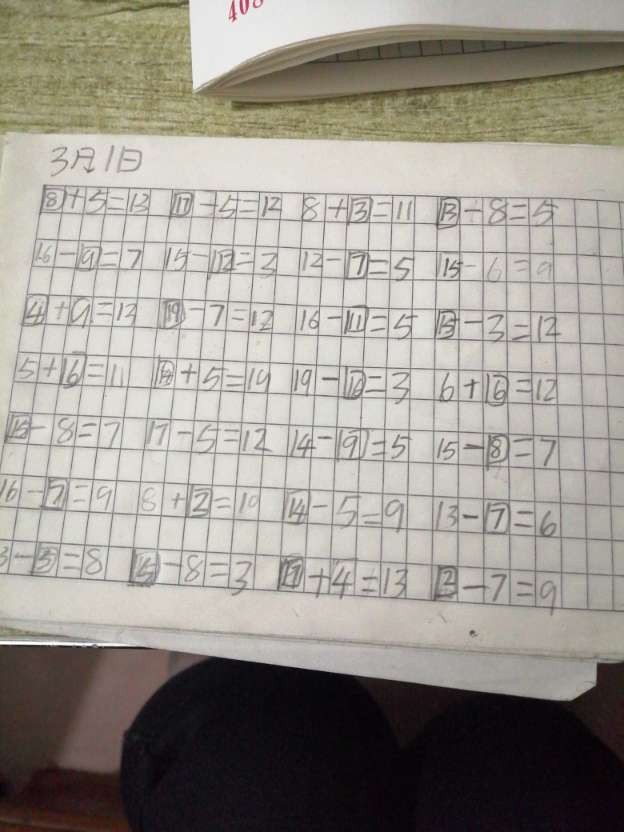 408
3月1日
8+5=13 17-5=12 8+3=11 13-8=5
16-9=7 15-12=3 12-7=5 15-6=9
4+9=13 19-7=12 16-11=5 15-3=12
5+6=11 +5=19 19-=3 6+6=12
15-8=7 17-5=12 14-9=5 15-8=7
16-7=9 8+2=10 14-5=9 13-7=6
3-5=8 -8=3 +4=13 -7=9